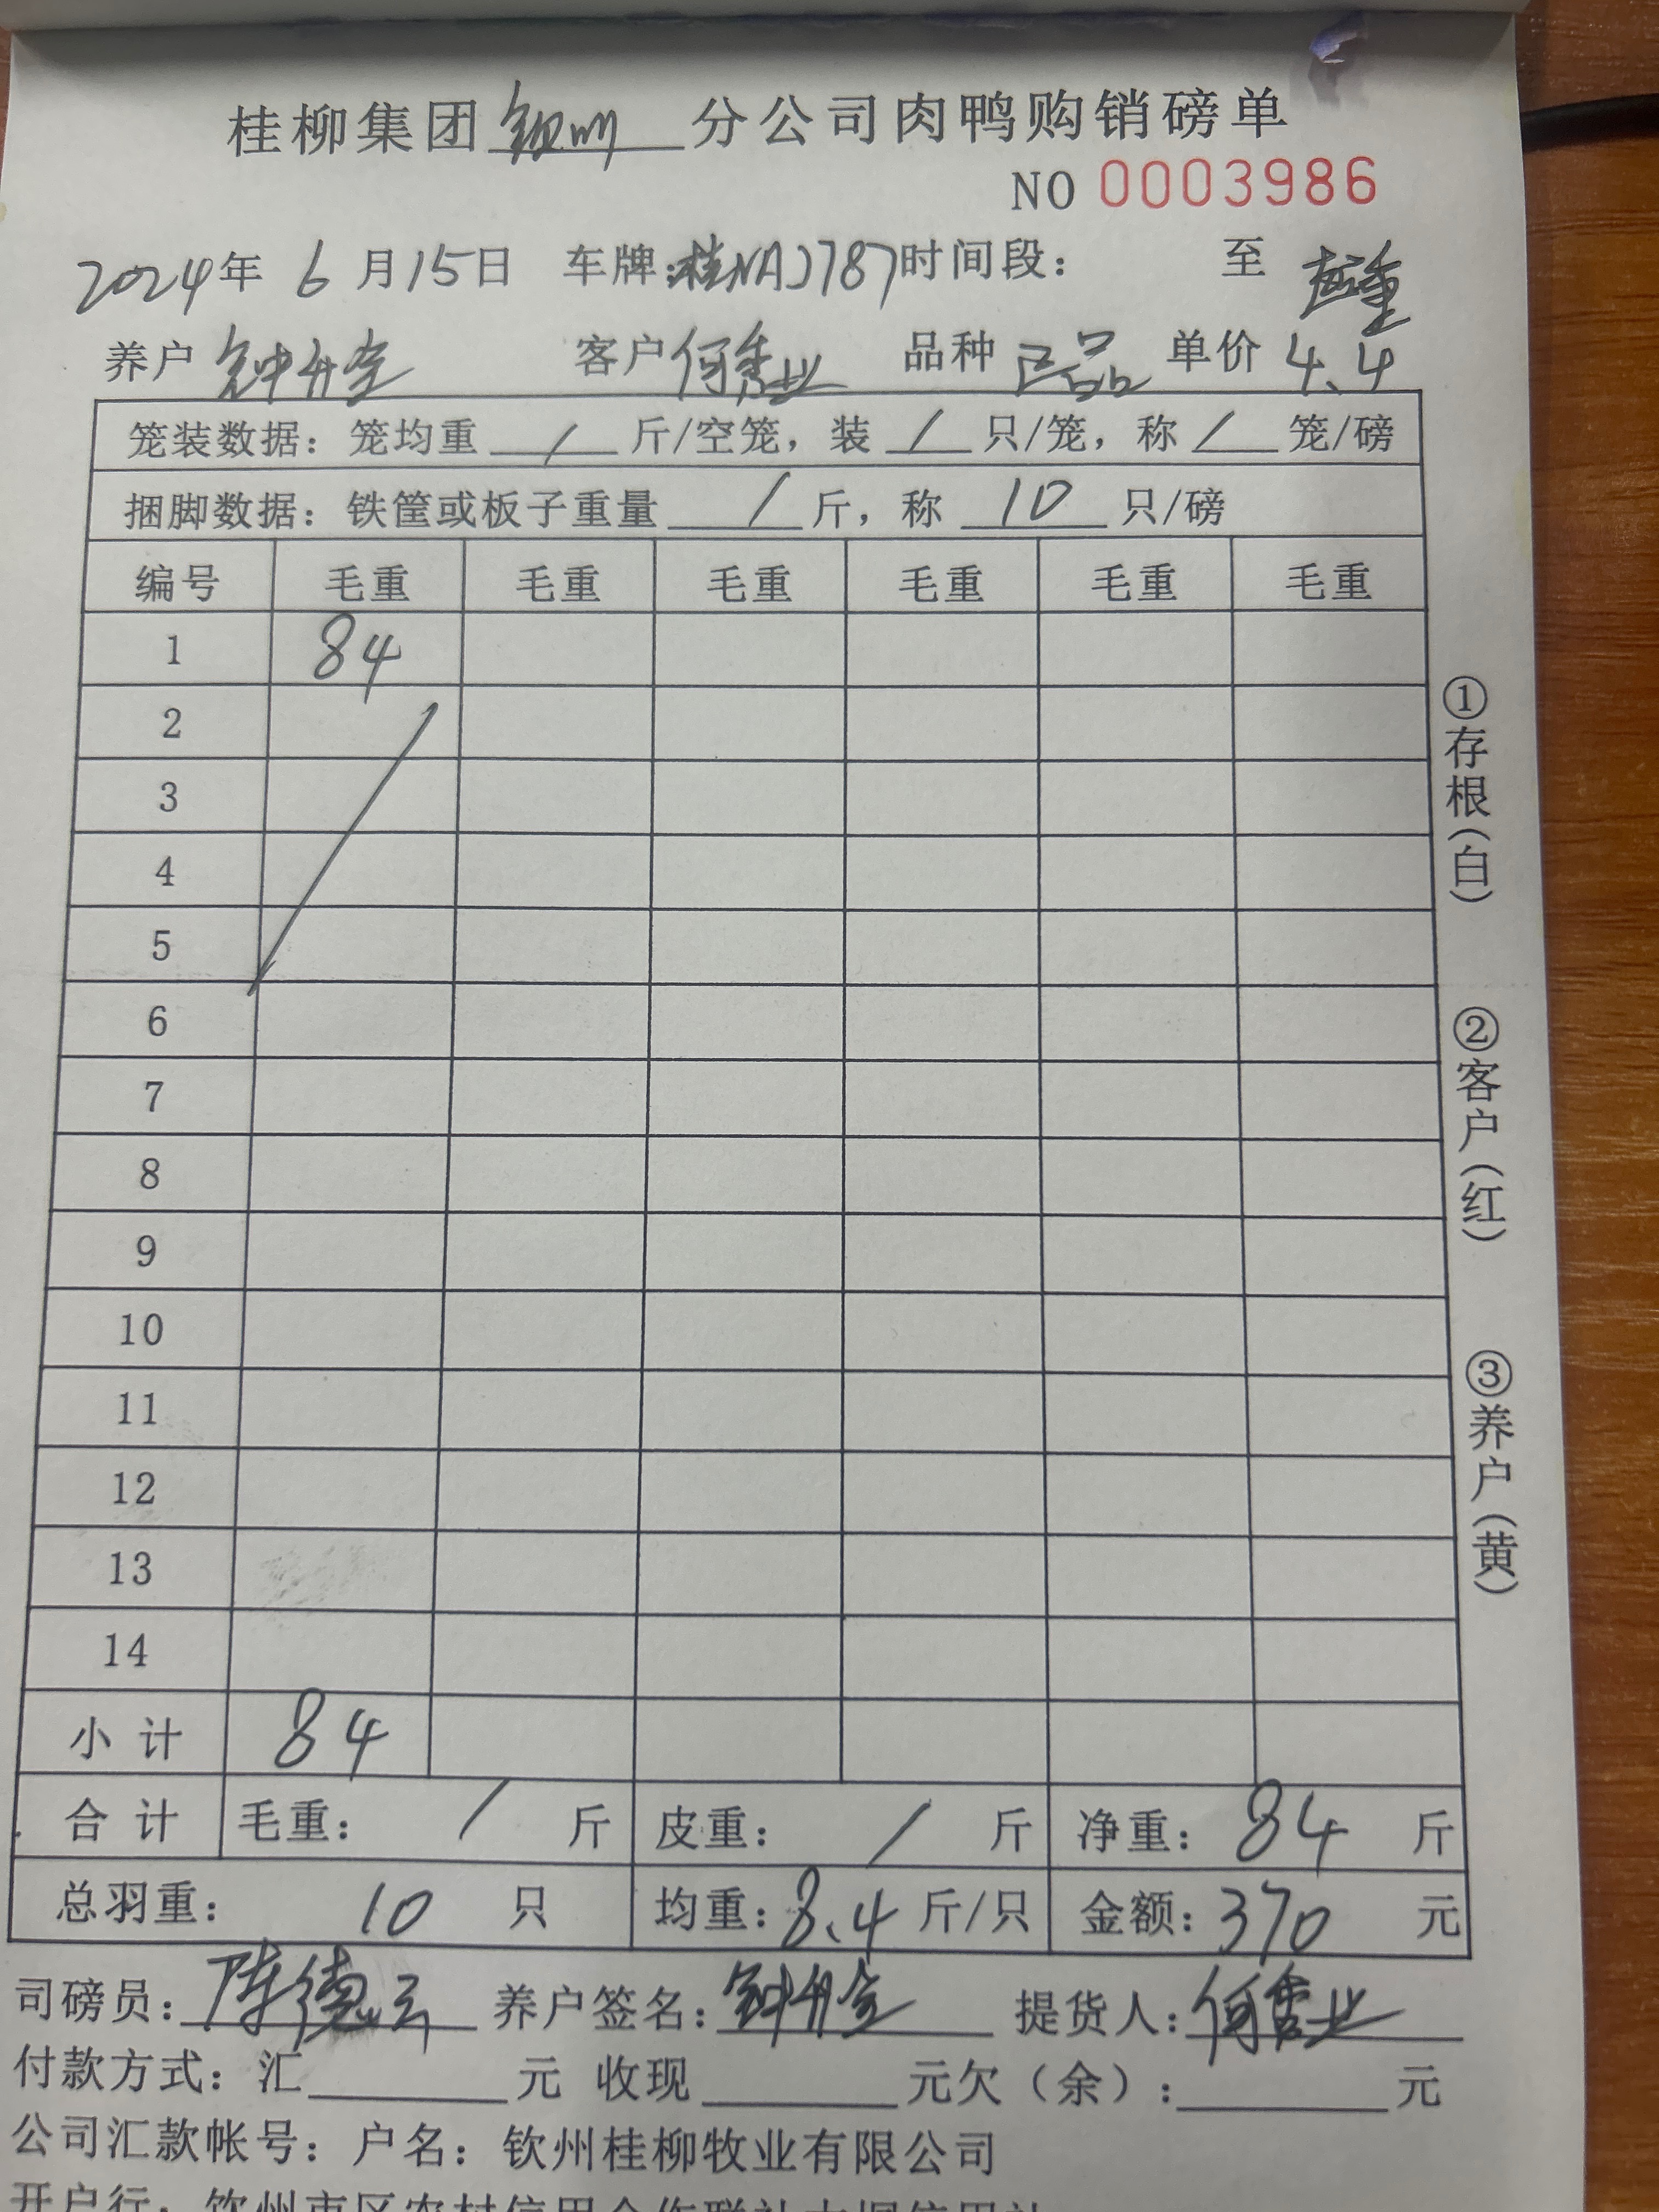 桂柳集团钦州分公司肉鸭购销磅单
NO 0003986
2024年 6月15日 车牌:桂NAJ787 时间段: 至
养户 钟升宝 客户 何秀业 品种 正品 单价 4.4
笼装数据: 笼均重 / 斤/空笼, 装 / 只/笼, 称 / 笼/磅
捆脚数据: 铁筐或板子重量 / 斤, 称 10 只/磅
编号 毛重 毛重 毛重 毛重 毛重 毛重
1 84
2
3
4
5
6
7
8
9
10
11
12
13
14
小计 84
合计 毛重: / 斤 皮重: / 斤 净重: 84 斤
总羽重: 10 只 均重: 8.4 斤/只 金额: 370 元
司磅员: 陈德云 养户签名: 钟升宝 提货人: 何秀业
付款方式: 汇 元 收现 元欠(余): 元
公司汇款帐号: 户名: 钦州桂柳牧业有限公司
①存根(白)
②客户(红)
③养户(黄)